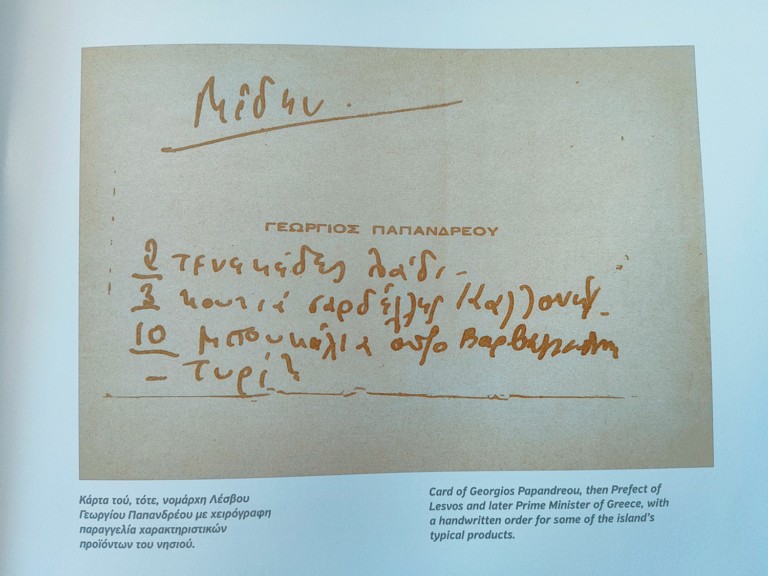 ΓΕΩΡΓΙΟΣ ΠΑΠΑΝΔΡΕΟΥ
2 τενεκέδες λάδι -
3 κουτιά σαρδέλλες Καλλονής -
10 μπουκάλια ούζο
- Τυρί
Κάρτα τού, τότε, νομάρχη Λέσβου
Γεωργίου Παπανδρέου με χειρόγραφη
παραγγελία χαρακτηριστικών
προϊόντων του νησιού.
Card of Georgios Papandreou, then Prefect of
Lesvos and later Prime Minister of Greece, with
a handwritten order for some of the island's
typical products.